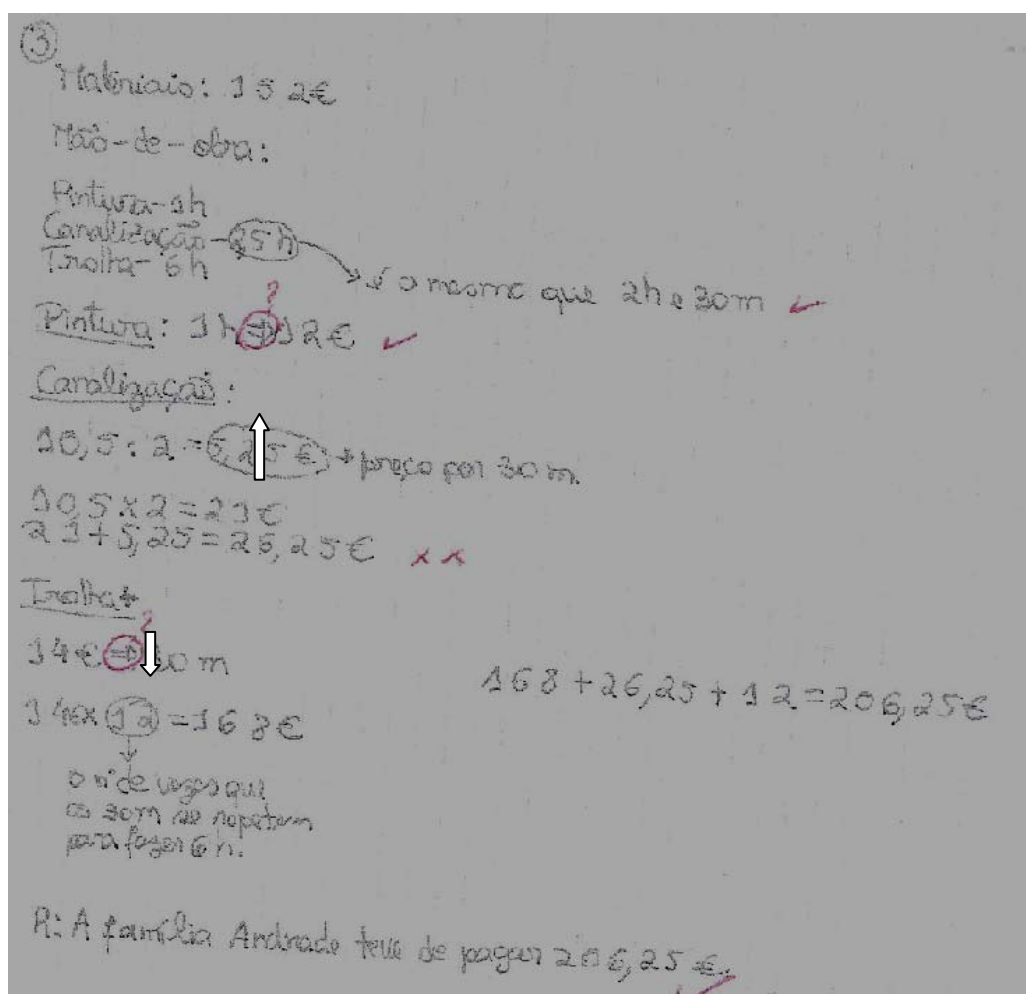 3
Materiais: 152€
Mão-de-obra:
Pintura-1h
Canalização-2,5h → é o mesmo que 2h e 30m
Trolha-6h
?
Pintura: 1h ⇒ 12€
Canalização:
10,5 : 2 = 5,25€ → preço por 30m.
10,5 x 2 = 21€
21 + 5,25 = 26,25€
Trolha
?
14€ ⇒ 30m
14 x 12 = 168€
168 + 26,25 + 12 = 206,25€
o nº de vezes que
os 30m se repetem
para fazer 6h.
R: A família Andrade teve de pagar 206,25€.